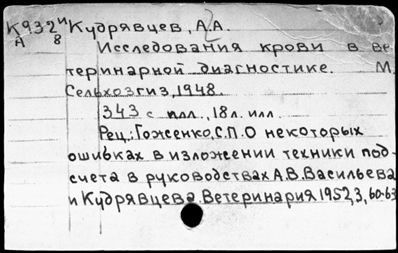 К932и Кудрявцев, А.А.
А 8
Исследования крови в ве
теринарной диагностике. М.
Сельхозгиз, 1948.
343 с илл., 18 л. илл.
Рец.: Гоженко, С.П. О некоторых
ошибках в изложении техники под-
счета в руководствах А.В. Васильева
и Кудрявцева. Ветеринария 1952, 3, 60-63